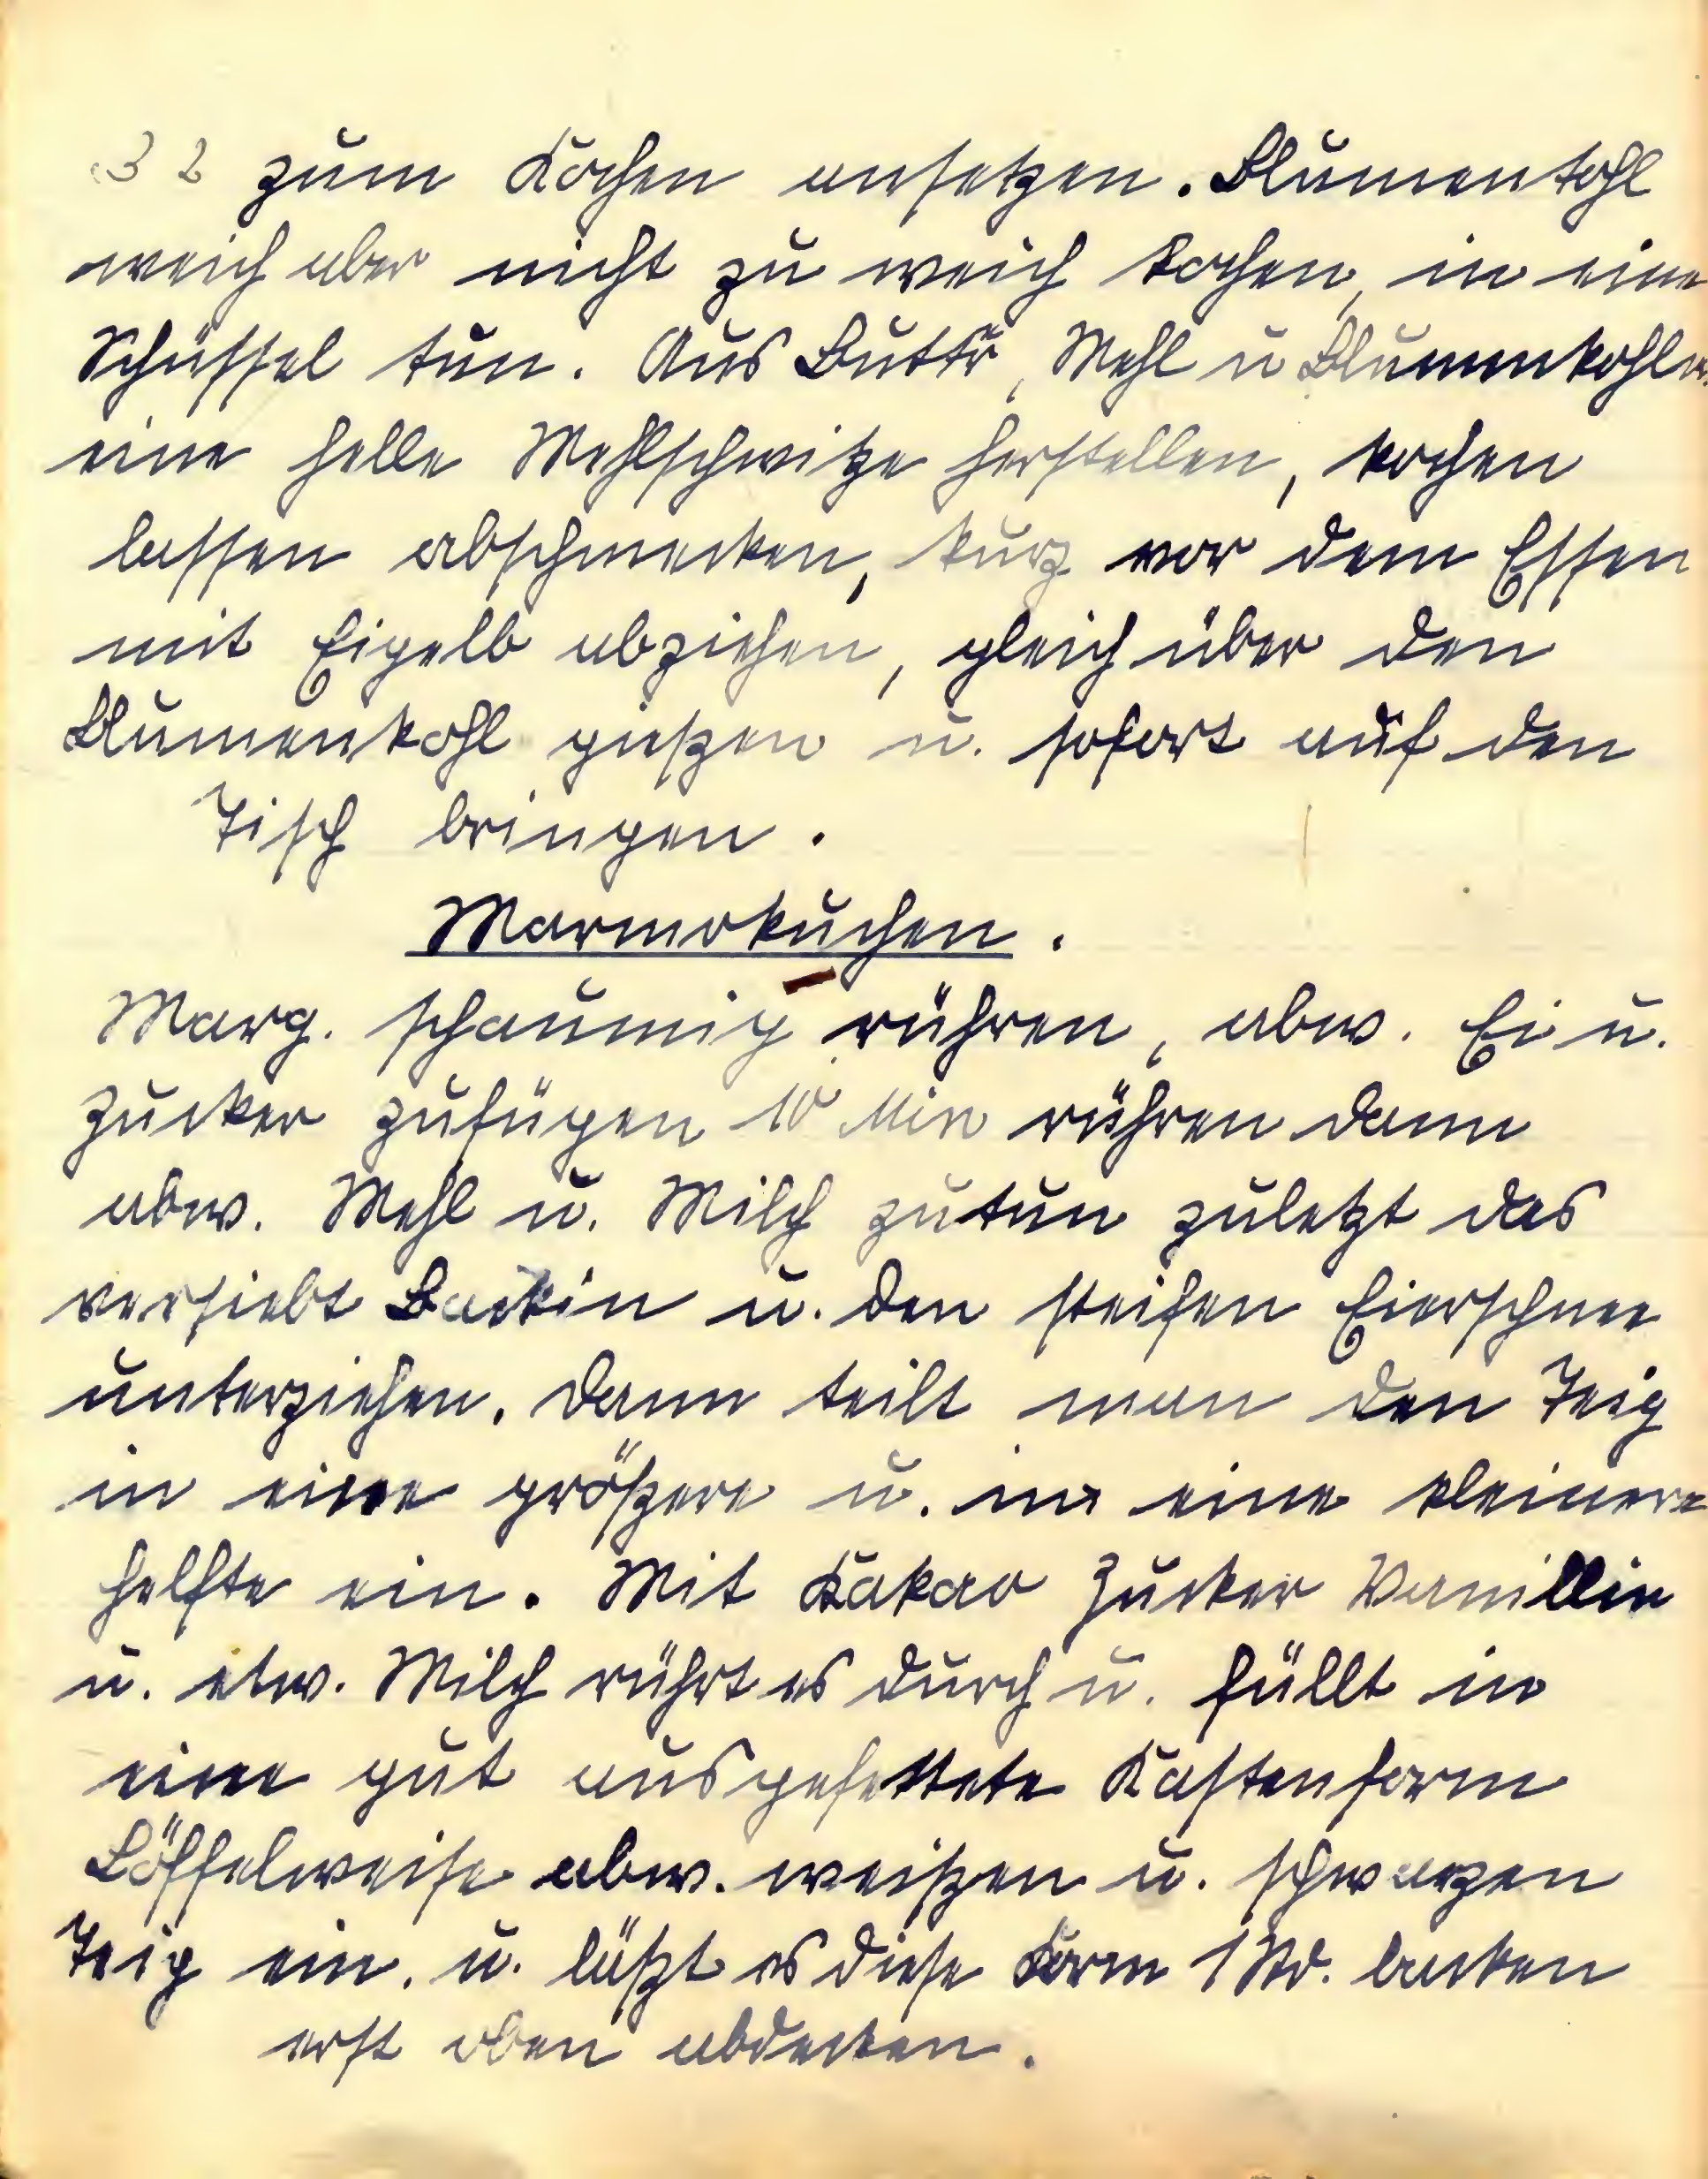 32 zum Kochen ansetzen. Blumenkohl
weich aber nicht zu weich kochen, in eine
Schüssel tun. Aus Butter, Mehl u Blumenkohlw.
eine helle Mehlschwitze herstellen, kochen
lassen abschmecken, kurz vor dem Essen
mit Eigelb abziehen, gleich über den
Blumenkohl gießen u. sofort auf den
Tisch bringen.
Marmokuchen.
Marg. schaumig rühren, abw. Ei u.
Zucker zufügen 10 Min rühren dann
abw. Mehl u. Milch zutun zuletzt das
versiebt Backin u. den steifen Eierschnee
unterziehen. Dann teilt man den Teig
in eine größere u. in eine kleinere
helfte ein. Mit Kakao Zucker Vanillin
u. etw. Milch rührt es durch u. füllt in
eine gut ausgefettete Kastenform
Löffelweise abw. weißen u. schwarzen
Teig ein. u. läßt es diese Form 1 Std. backen
erst oben abdecken.